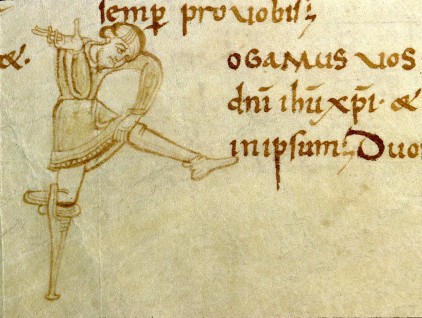 semp pro vobis;
&.
OGAMUS VOS
dn̄i ihū xp̄i · &
inipsum; Duo